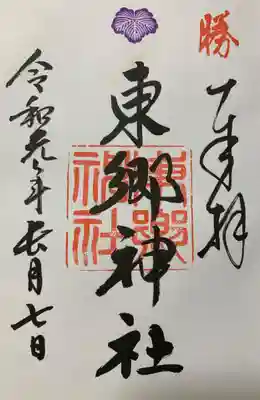 勝
奉拝
東郷神社
東郷神社
令和元年長月七日